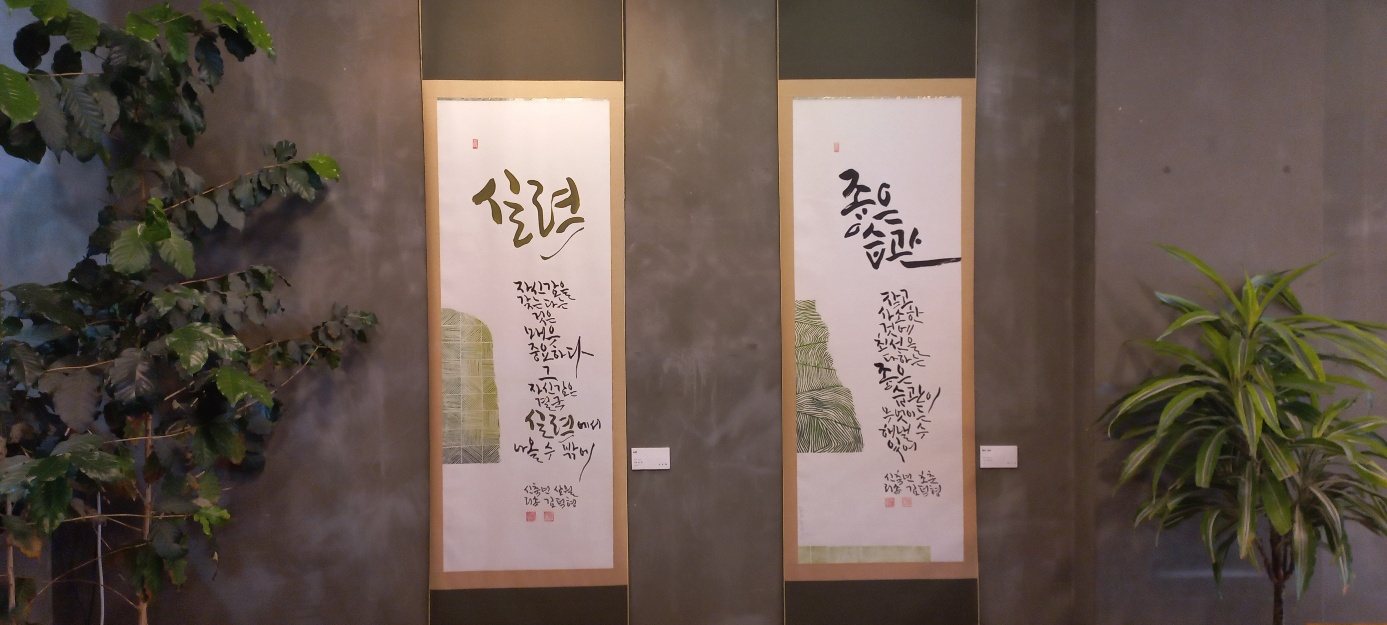 실력
자신감을
갖는다는
것은
매우
중요하다
그
자신감은
결국
실력에서
나올 수 밖에
신축년
김덕형
좋은
습관
작고
사소한
것에
최선을
다하는
좋은
습관이
무엇이든
해낼 수
있에
신축년
김덕형